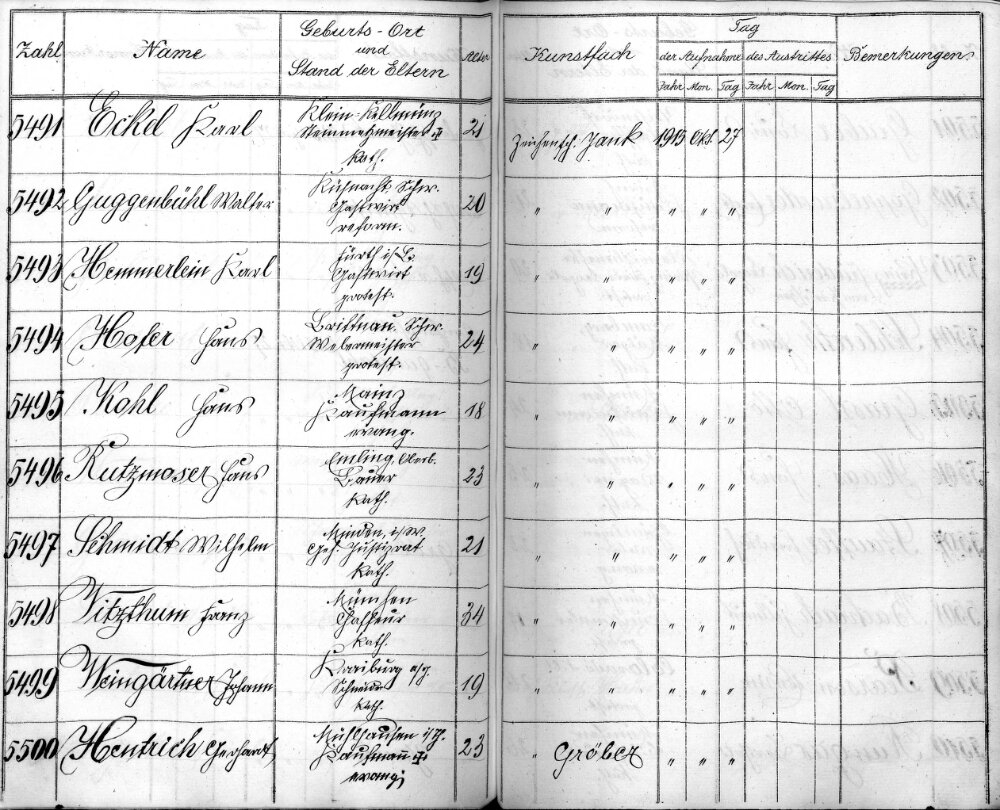 Zahl. Name Geburts-Ort und Stand der Eltern Alter Kunstfach Tag Bemerkungen.
der Aufnahme des Austrittes
Jahr Mon. Tag Jahr Mon. Tag
5491 Eckl Karl Klein-Kellmünz 21 Zeichensch. Jank 1913 Okt. 27
Steinmetzmeister †
kath.
5492 Guggenbühl Walter Küsnacht Schw. 20 " " " " "
Gastwirt
reform.
5493 Hemmerlein Karl Fürth i/B. 19 " " " " "
Gastwirt
protest.
5494 Hofer Hans Brittnau, Schw. 24 " " " " "
Webermeister
protest.
5495 Kohl Hans Mainz 18 " " " " "
Kaufmann
evang.
5496 Kutzmoser Hans Emling, Oberb. 23 " " " " "
Bauer
kath.
5497 Schmidt Wilhelm Minden, i/W. 21 " " " " "
Geh. Justizrat
kath.
5498 Vitzthum Franz München 34 " " " " "
Chaffeur
kath.
5499 Weingärtner Johann Kraiburg a/J. 19 " " " " "
Schneider
kath.
5500 Hentrich Gerhardt Mühlhausen i/T. 23 " Gröber " " "
Kaufmann †
evang.